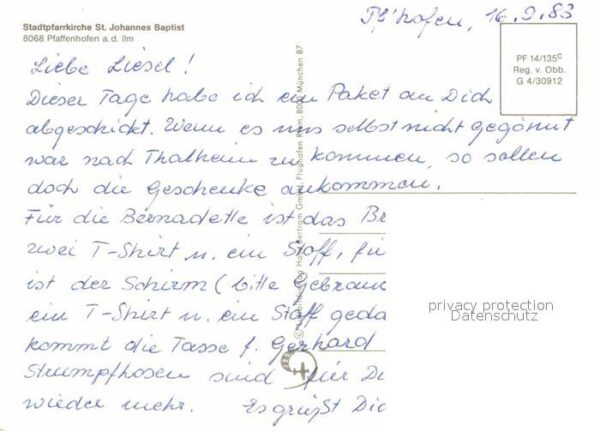 Stadtpfarrkirche St. Johannes Baptist
8068 Pfaffenhofen a.d. Ilm
Pf'hofen, 16.9.83
PF 14/135c
Reg. v. Obb.
G 4/30912
Liebe Liesel!
Dieser Tage habe ich ein Paket an Dich
abgeschickt. Wenn es uns selbst nicht gegönnt
war nach Thalheim zu kommen, so sollen
doch die Geschenke ankommen.
Für die Bernadette ist das Br
zwei T-Shirt u. ein Stoff, für
ist der Schirm (bitte Gebrauc
ein T-Shirt u. ein Stoff geda
kommt die Tasse f. Gerhard
Strumpfhosen sind für Di
wieder mehr. Es grüßt Dic
Bertram GmbH, Flughafen Riem, 8000 München 87
privacy protection
Datenschutz